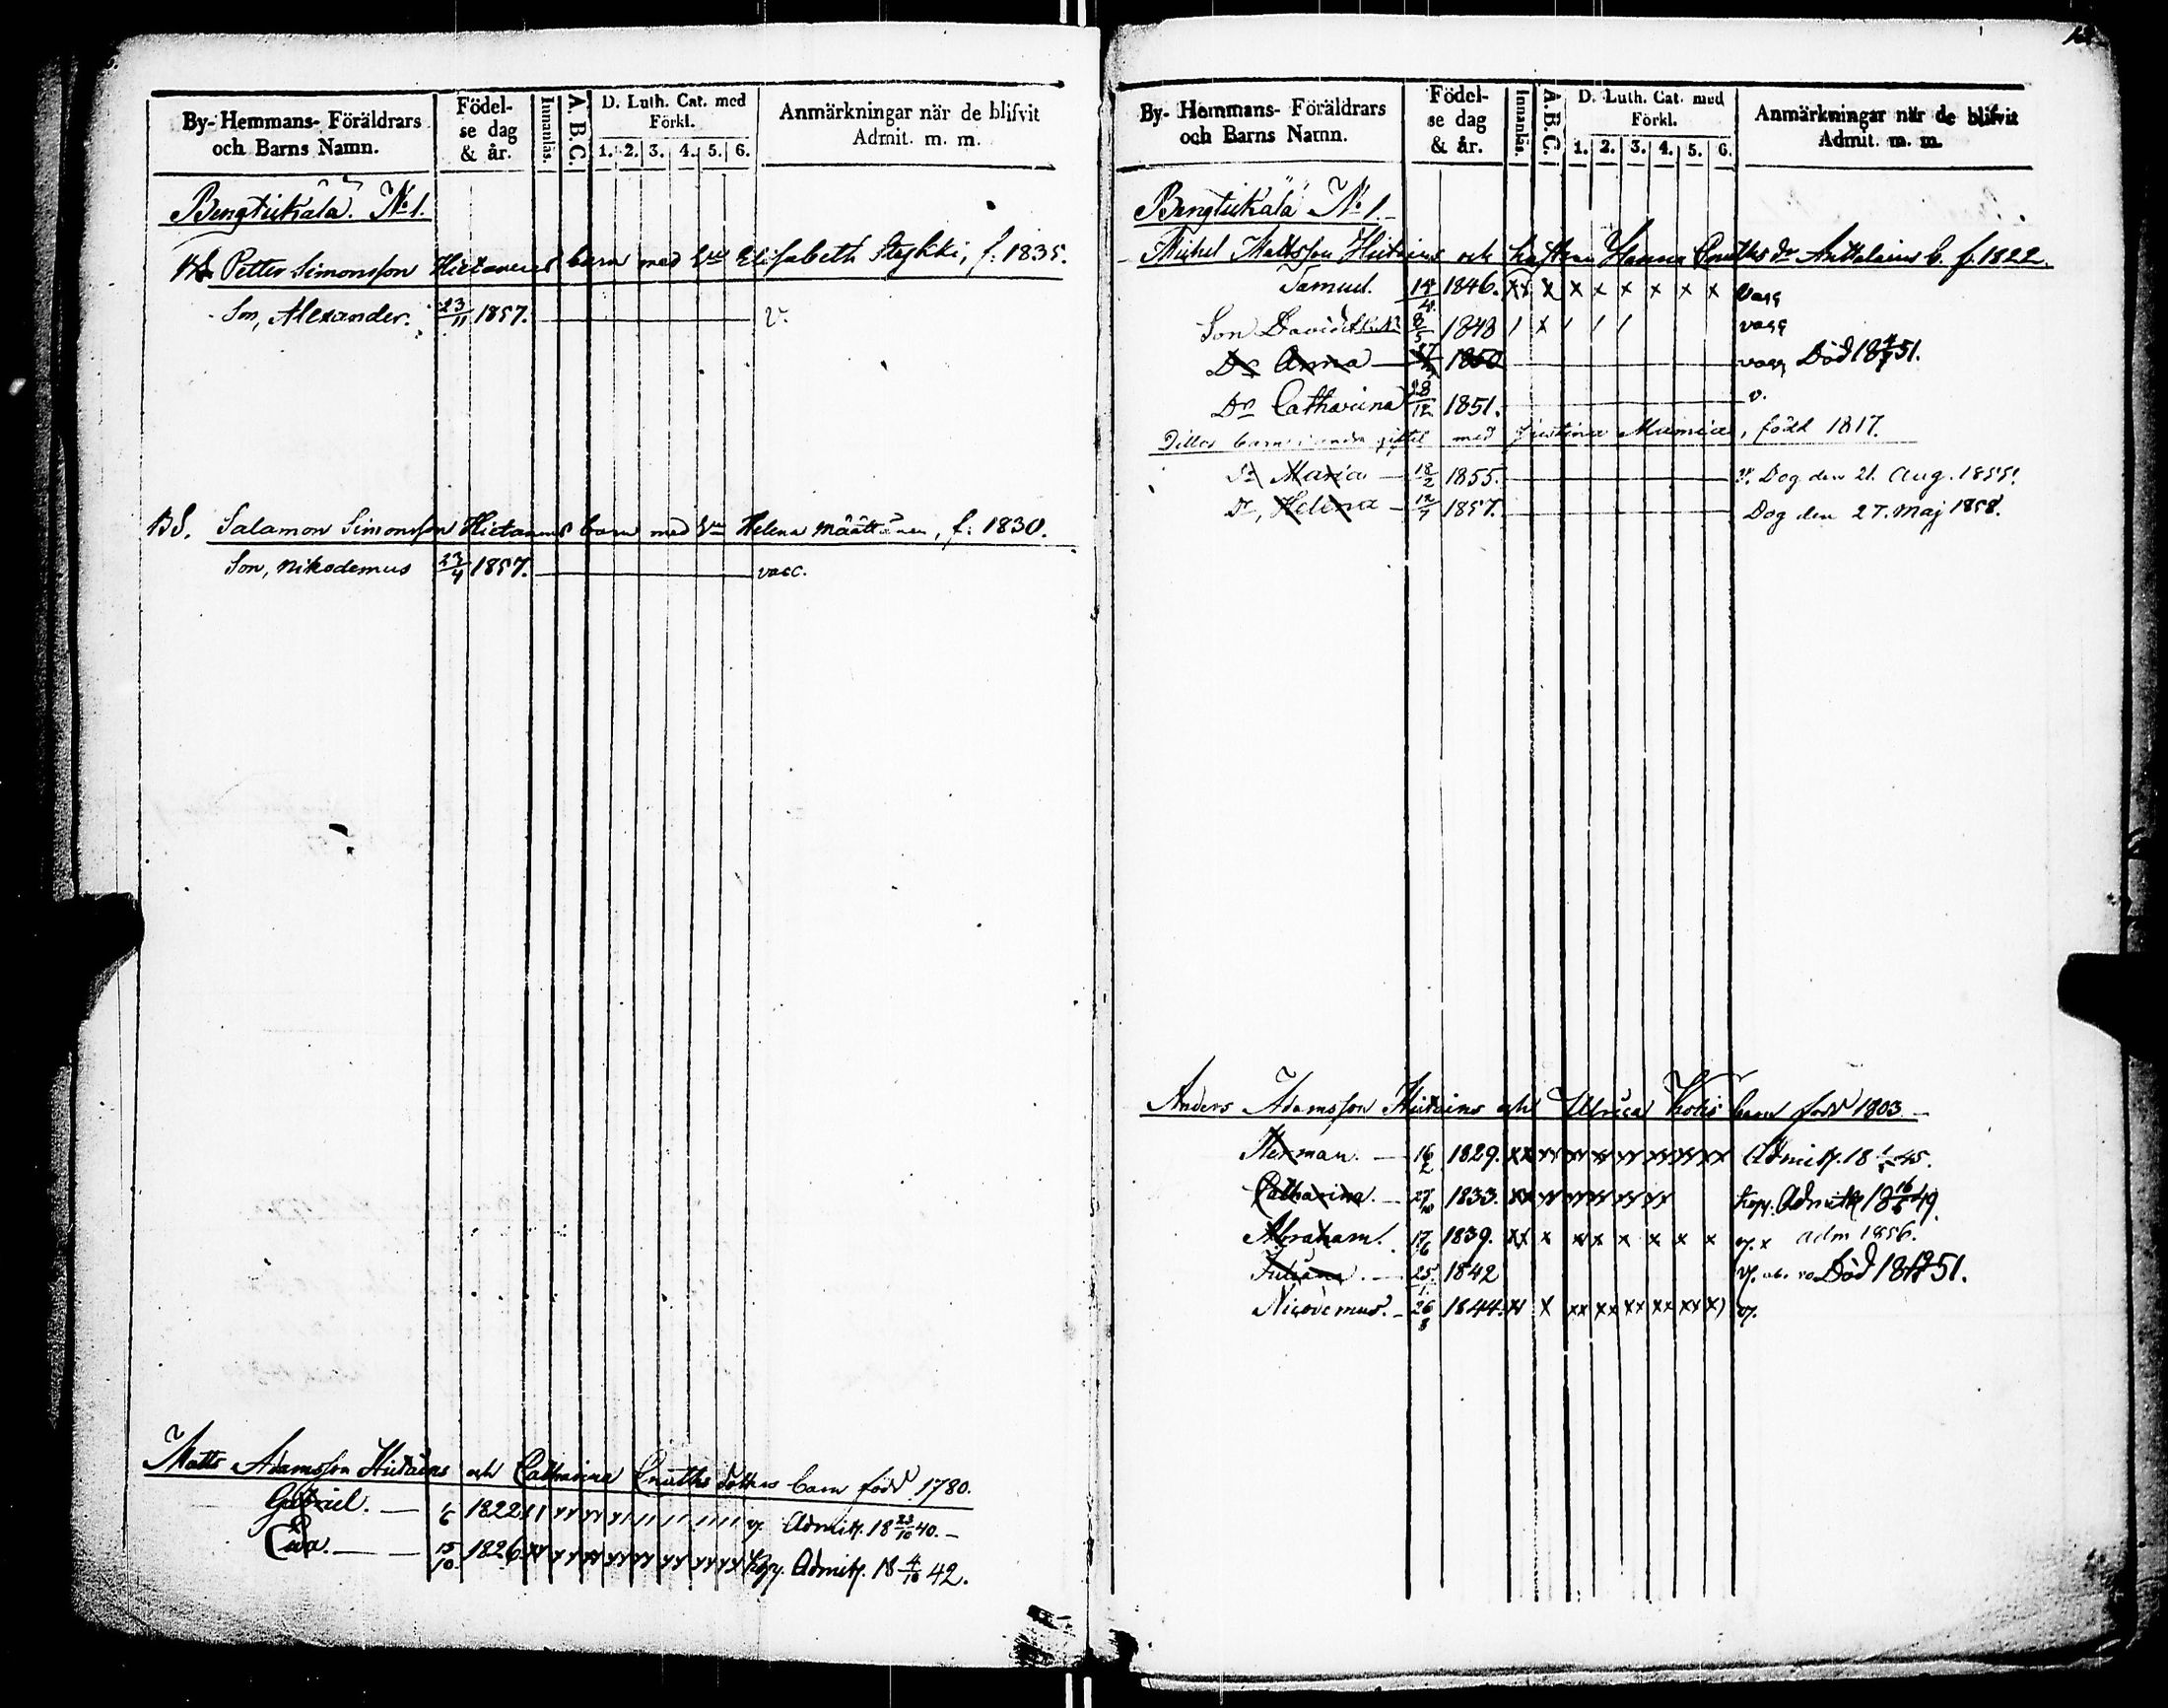 By- Hemmans- Föräldrars
och Barns Namn.
Födel-
se dag
& år.
Innanläs.
A. B. C.
D. Luth. Cat. med
Förkl.
1. 2. 3. 4. 5. 6.
Anmärkningar när de blifvit
Admit. m. m.
Bengtsikälä. No 1.
BS. Petter Simonsson Hietanens barn med Elisabeth , f. 1835.
Son, Alexander. 23/11 1857. v.
BS. Salamon Simonsson Hietanens barn med Helena Määttänen, f. 1830.
Son, Nikodemus 23/4 1857. vacc.
Matts Adamsson Hietains och Catharina Cnuths dotters barn född 1780.
Gabriel. 6 1822 v. Admitt. 18 23/10 40.
Eva. 15/10 1826. xx Kop. Admitt. 18 4/10 42.
By- Hemmans- Föräldrars
och Barns Namn.
Födel-
se dag
& år.
Innanläs.
A. B. C.
D. Luth. Cat. med
Förkl.
1. 2. 3. 4. 5. 6.
Anmärkningar när de blifvit
Admit. m. m.
Bengtsikälä No 1.
Michel Mattsson Hietains och hustrun Hanna Cnuths dr Anttalains b. f. 1822.
Samuel. 1846. xx x x x x x x x vacc
Son David 8/5 1848 / x / / / vacc
Dr Anna 1850 vacc Död 18 51.
Dr Catharina 28/12 1851. v.
Dittos barn i andra giftet med Justina Mamia, född 1817.
Dr Maria 18/2 1855. v. Dog den 21. Aug. 1855.
Dr, Helena 1857. Dog den 27. Maj 1858.
Anders Adamsson Hietains och Ulrica barn född 1803
Herman. 16/2 1829. Admitt. 18 45.
Catharina. 27/10 1833. Kop. Admitt 18 16/6 49.
Abraham. 17/6 1839. xx x xx x x x x x v. x adm 1856.
Juliana. 25/1 1842 v. Död 18 51.
Nicodemus. 26/8 1844. xx x xx xx xx xx xx x v.